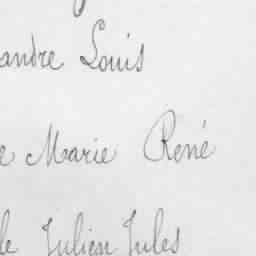 andre Louis
e Marie René
le Julien Jules